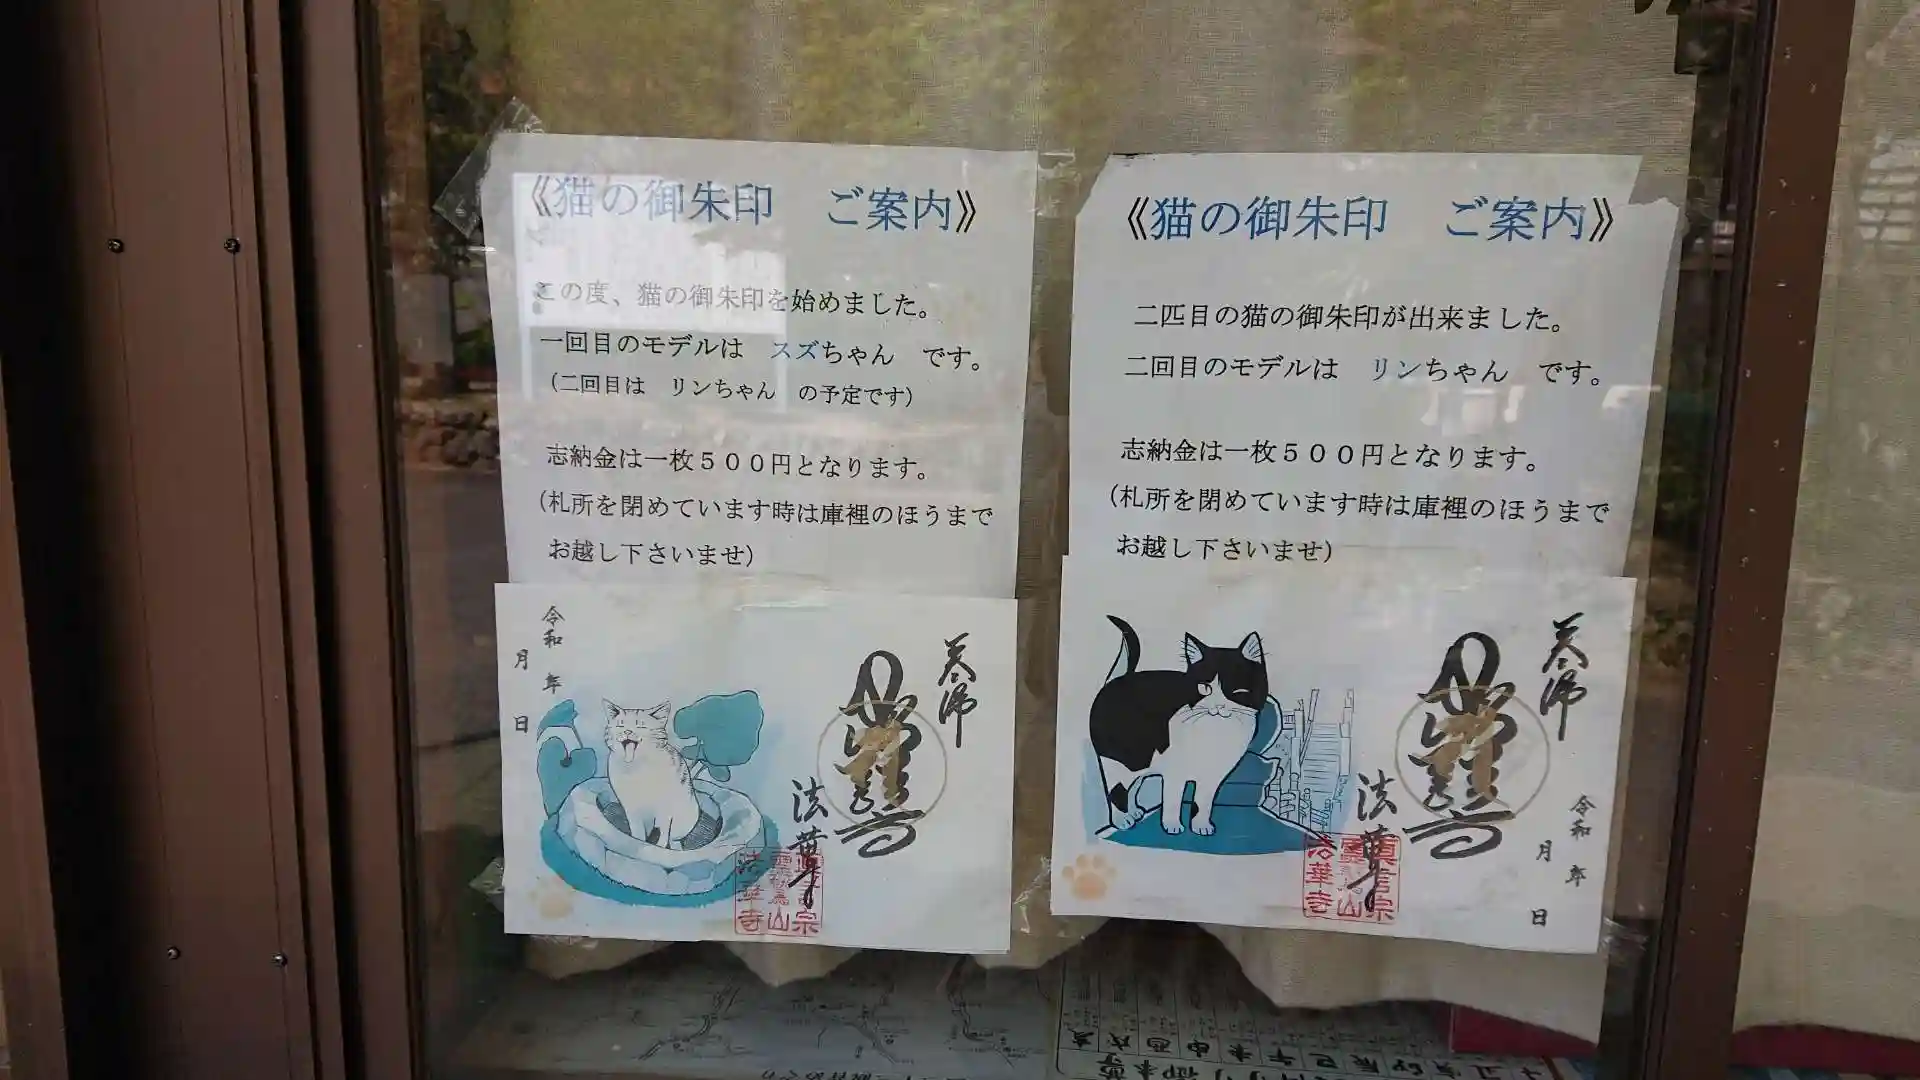 《猫の御朱印　ご案内》
この度、猫の御朱印を始めました。
一回目のモデルは　スズちゃん　です。
（二回目は　リンちゃん　の予定です）
志納金は一枚５００円となります。
（札所を閉めています時は庫裡のほうまで
お越し下さいませ）
令和　年
月　日
法華寺
《猫の御朱印　ご案内》
二匹目の猫の御朱印が出来ました。
二回目のモデルは　リンちゃん　です。
志納金は一枚５００円となります。
（札所を閉めています時は庫裡のほうまで
お越し下さいませ）
令和　年
月　日
法華寺